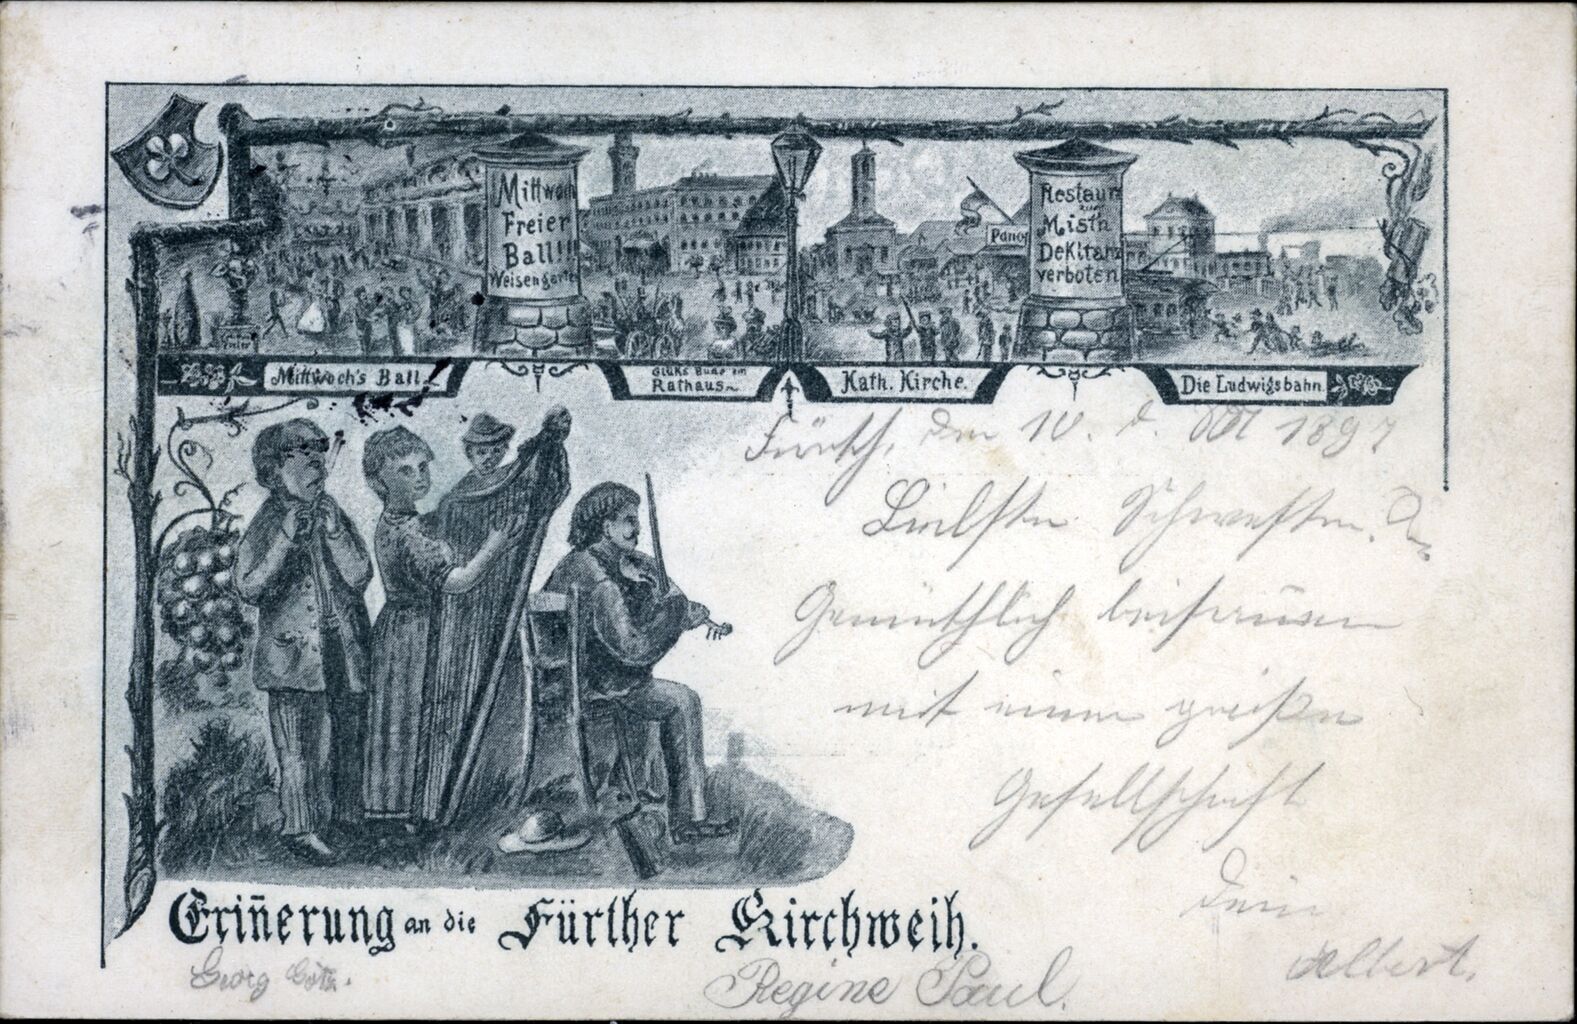 Mittwoch
Freier
Ball!!!
Weisengarten
Restaur
zur
Mist'n
DeKltanz
verboten
Pano
Mittwoch's Ball.
Glüks Bude im
Rathaus.
Kath. Kirche.
Die Ludwigsbahn.
Fürth, den 10. d. Okt 1897
Liebste Schwester.
Gemüthlich beisamen
mit einer großen
Gesellschaft
Dein
Albert.
Eriñerung an die Fürther Kirchweih.
Georg Götz.
Regine Paul.